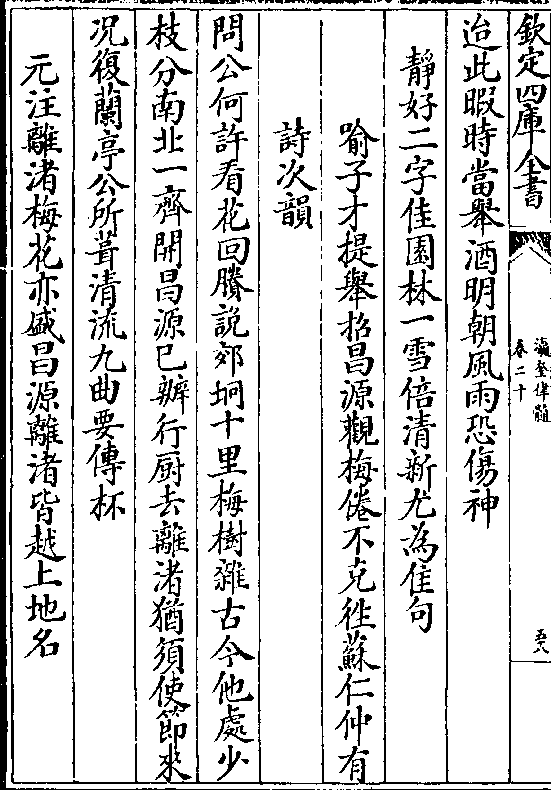 欽定四庫全書
瀛奎律髓
卷二十
五八
迨此暇時當舉酒明朝風雨恐傷神
靜好二字佳園林一雪倍清新尤為佳句
喻子才提舉招昌源觀梅倦不克徃蘇仁仲有
詩次韻
問公何許看花回騰說郊坰十里梅樹雜古今他處少
枝分南北一齊開昌源已辦行厨去離渚猶須使節來
况復蘭亭公所葺清流九曲要傳杯
元注離渚梅花亦盛昌源離渚皆越上地名